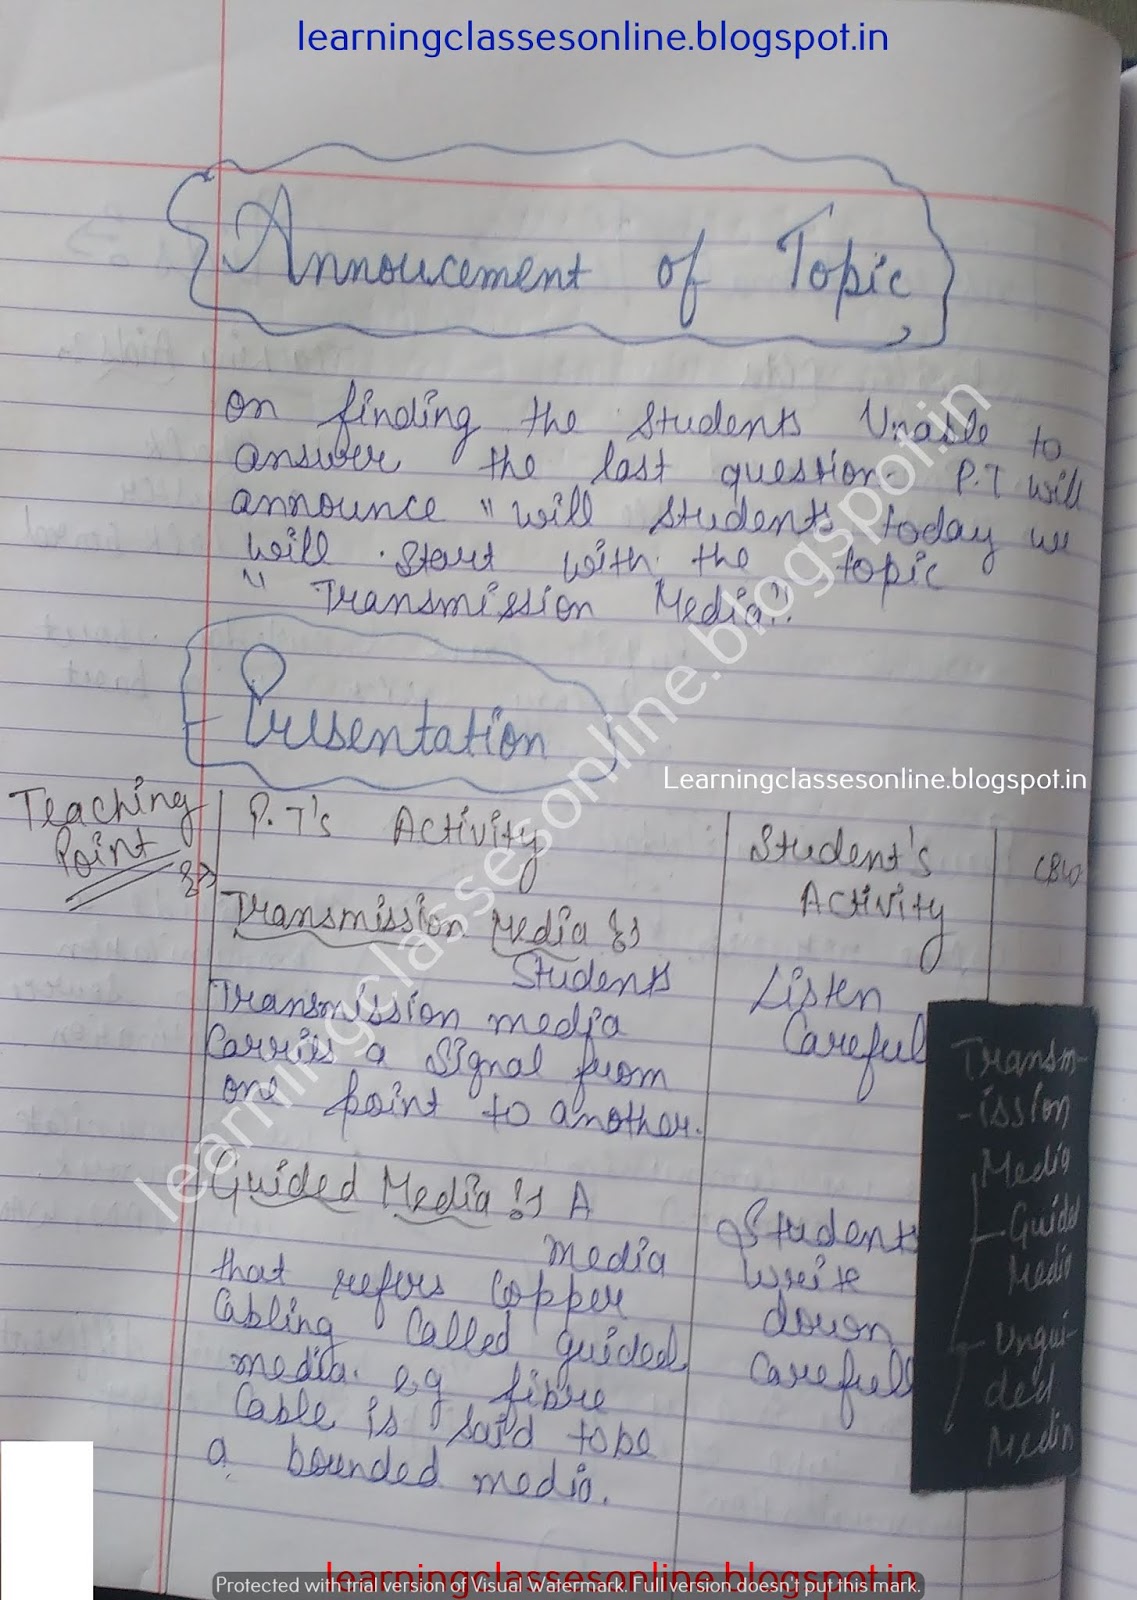 learningclassesonline.blogspot.in
Annoucement of Topic
on finding the Students Unable to
answer the last question. P.T will
announce " will students today we
will start with the topic
" Transmission Media".
Presentation
Learningclassesonline.blogspot.in
Teaching
Point
P.T's Activity
Student's
Activity
CBW
Transmission Media :
Students
Transmission media
Carries a Signal from
one point to another.
Listen
Careful
Guided Media : A
media
that refers Copper
Cabling Called guided
media. e.g fibre
Cable is said to be
a bounded media.
Students
write
down
Carefull
Transm-
-ission
Media
- Guided
Media
- Ungui-
ded
Media
learningclassesonline.blogspot.in
learningclassesonline.blogspot.in
Protected with trial version of Visual Watermark. Full version doesn't put this mark.